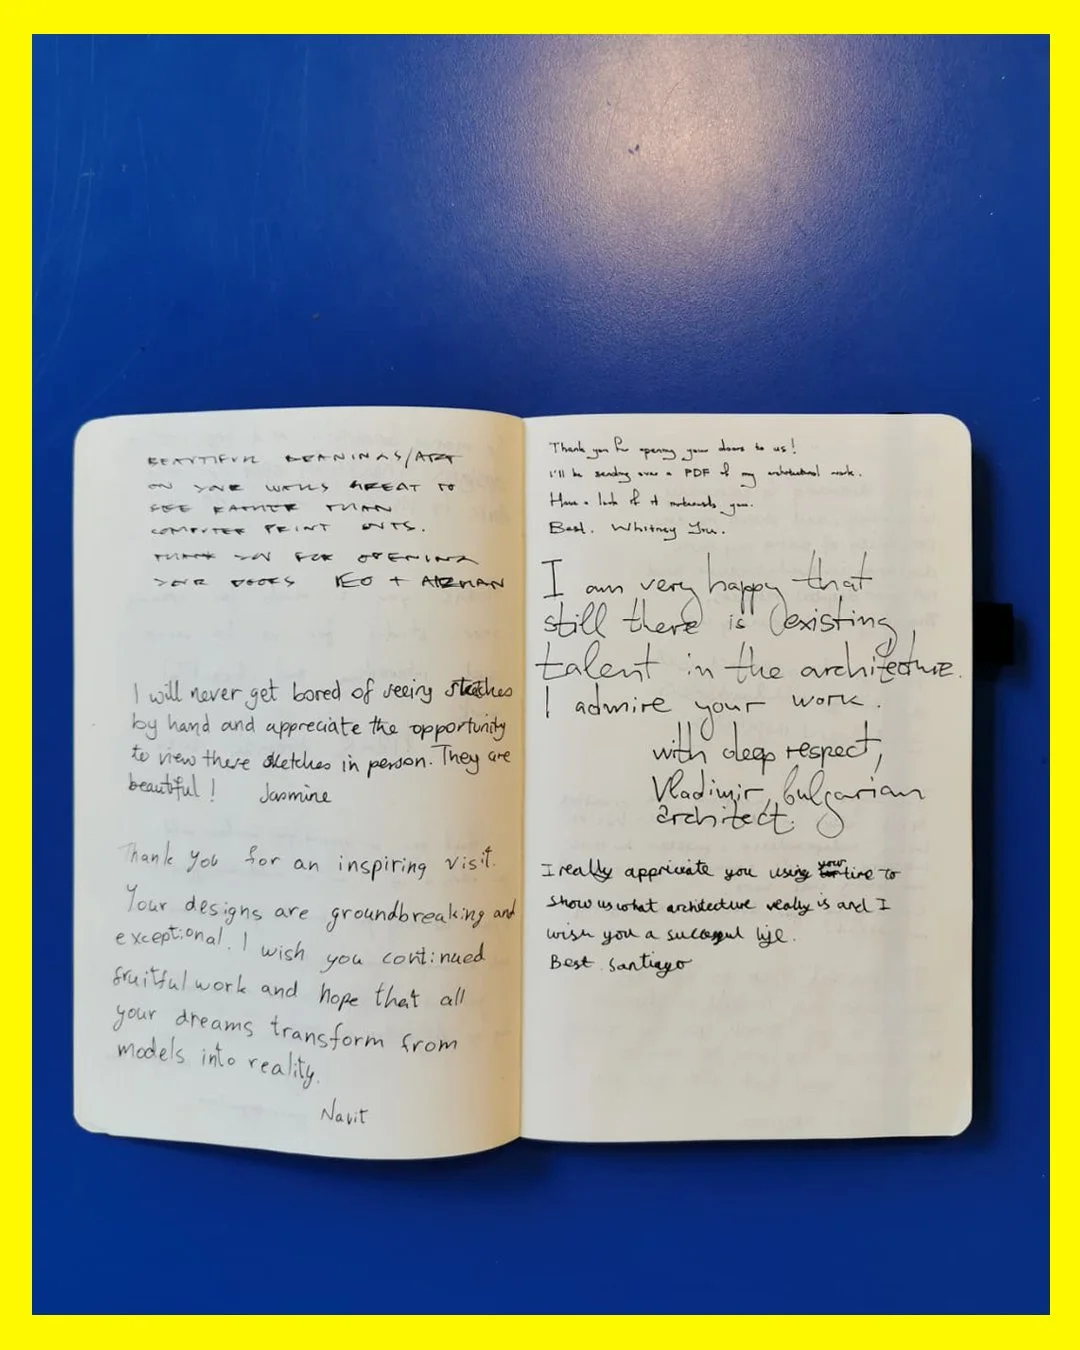 BEAUTIFUL DRAWINGS/ART
ON YOUR WALLS GREAT TO
SEE RATHER THAN
COMPUTER PRINT OUTS.
THANK YOU FOR OPENING
YOUR DOORS +
I will never get bored of seeing sketches
by hand and appreciate the opportunity
to view these sketches in person. They are
beautiful! Jasmine
Thank you for an inspiring visit.
Your designs are groundbreaking and
exceptional. I wish you continued
fruitful work and hope that all
your dreams transform from
models into reality.
Navit
Thank you for opening your doors to us!
I'll be sending over a PDF of my architectural work.
Have a look if it interests you.
Best. Whitney
I am very happy that
still there is existing
talent in the architecture.
I admire your work.
with deep respect,
Vladimir, bulgarian
architect.
I really appriciate you using your time to
show us what architecture really is and I
wish you a succesful life.
Best Santiago